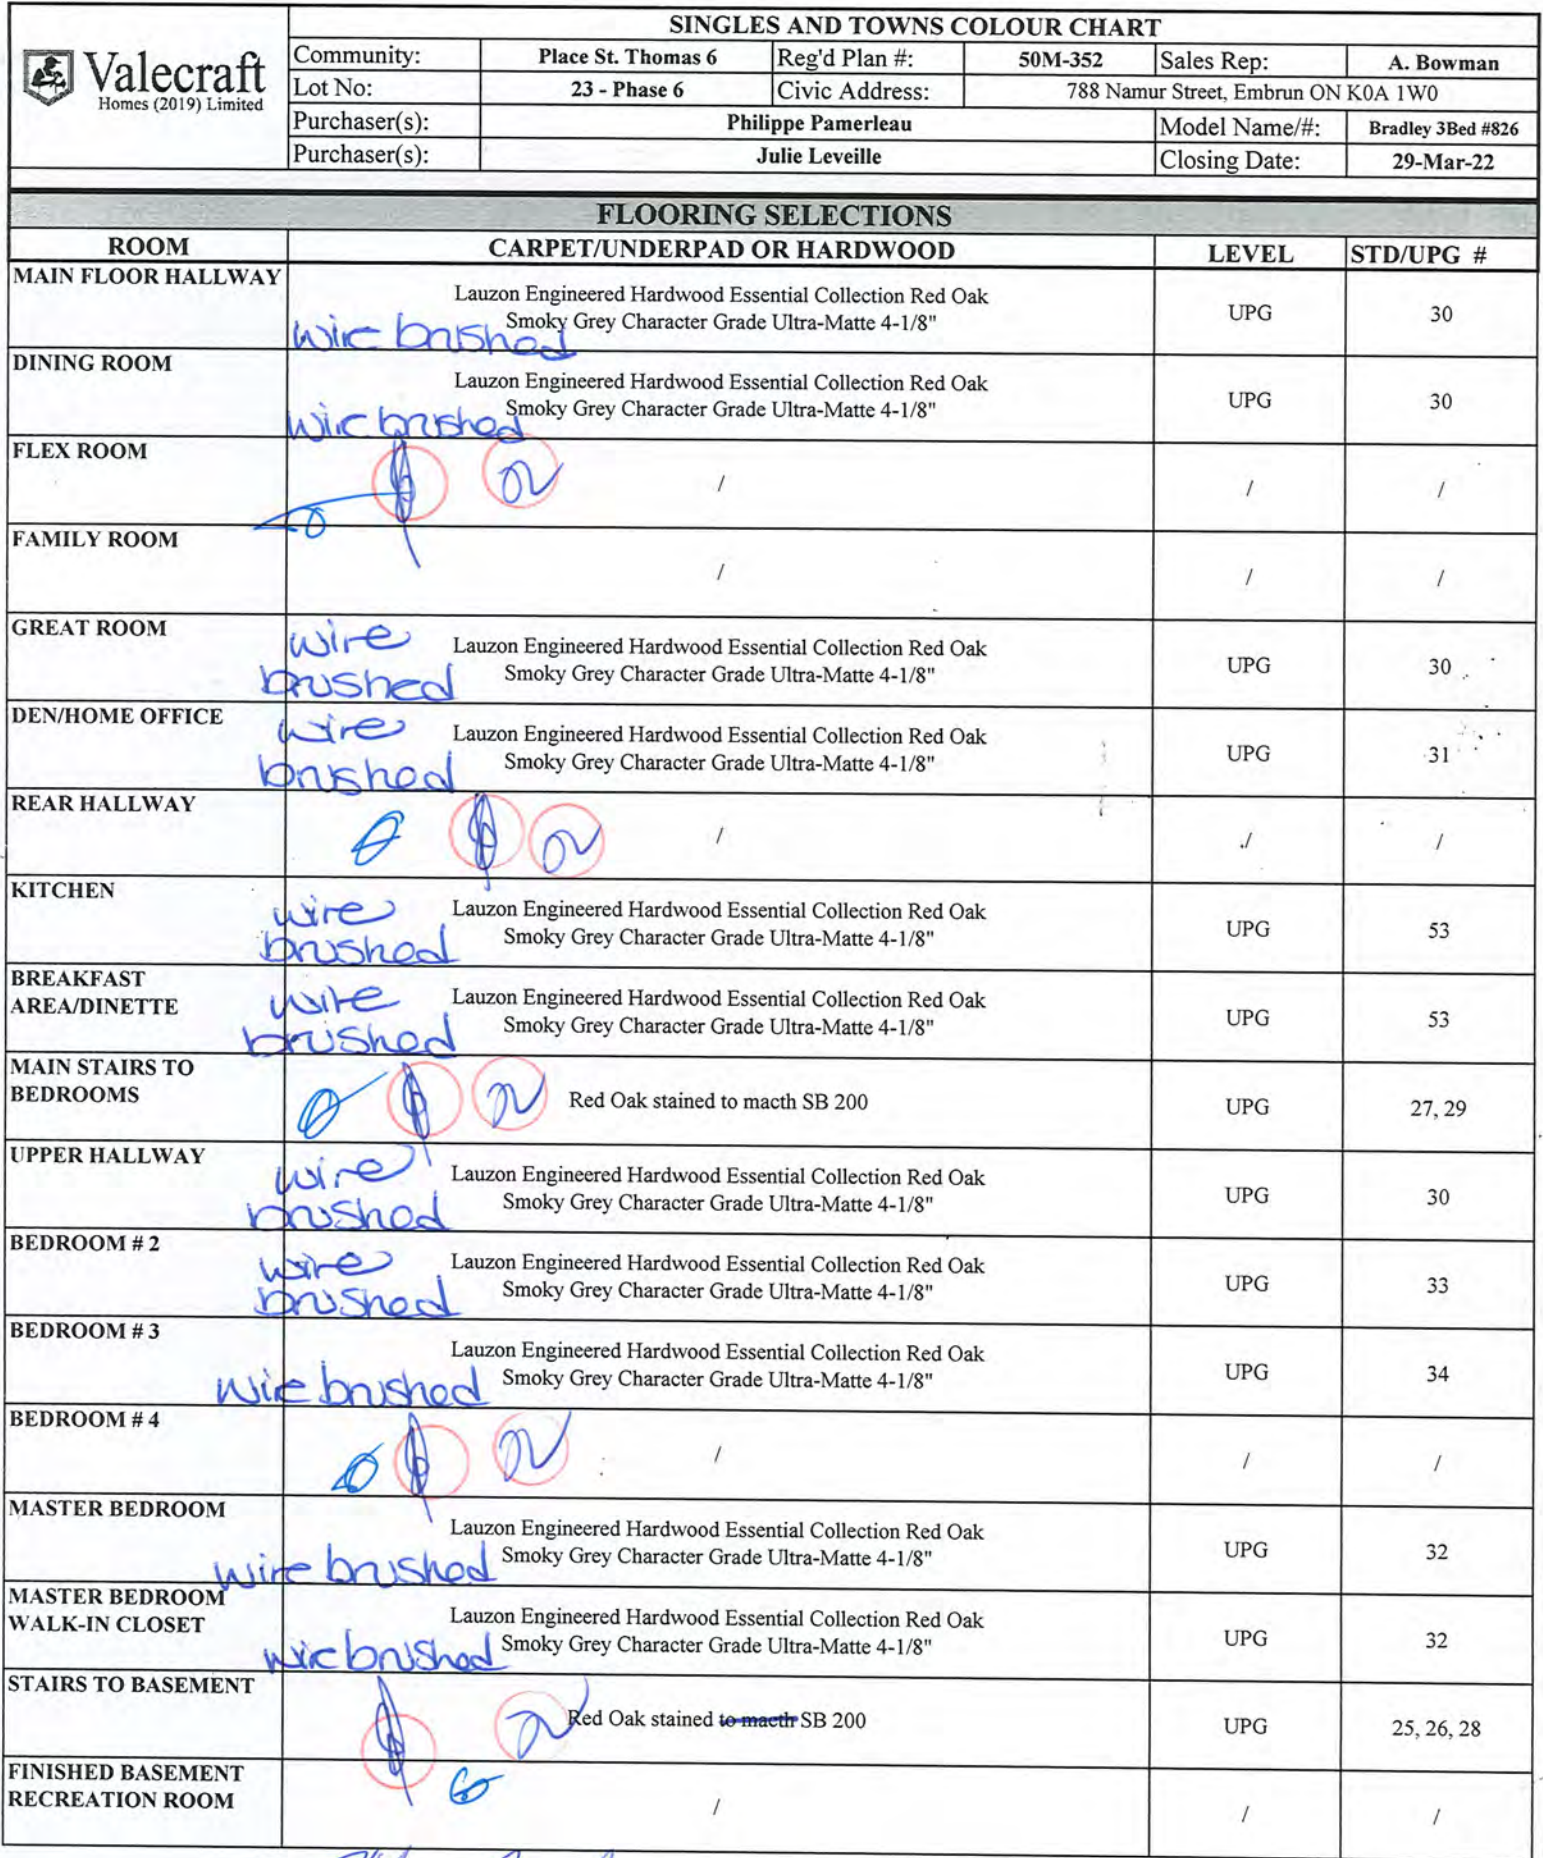 SINGLES AND TOWNS COLOUR CHART
Valecraft
Homes (2019) Limited
Community: Place St. Thomas 6 Reg'd Plan #: 50M-352 Sales Rep: A. Bowman
Lot No: 23 - Phase 6 Civic Address: 788 Namur Street, Embrun ON K0A 1W0
Purchaser(s): Philippe Pamerleau Model Name/#: Bradley 3Bed #826
Purchaser(s): Julie Leveille Closing Date: 29-Mar-22
FLOORING SELECTIONS
ROOM CARPET/UNDERPAD OR HARDWOOD LEVEL STD/UPG #
MAIN FLOOR HALLWAY
Lauzon Engineered Hardwood Essential Collection Red Oak
wire brushed Smoky Grey Character Grade Ultra-Matte 4-1/8" UPG 30
DINING ROOM
Lauzon Engineered Hardwood Essential Collection Red Oak
wire brushed Smoky Grey Character Grade Ultra-Matte 4-1/8" UPG 30
FLEX ROOM
/ / /
FAMILY ROOM
/ / /
GREAT ROOM
wire Lauzon Engineered Hardwood Essential Collection Red Oak
brushed Smoky Grey Character Grade Ultra-Matte 4-1/8" UPG 30
DEN/HOME OFFICE
wire Lauzon Engineered Hardwood Essential Collection Red Oak
brushed Smoky Grey Character Grade Ultra-Matte 4-1/8" UPG 31
REAR HALLWAY
/ / /
KITCHEN
wire Lauzon Engineered Hardwood Essential Collection Red Oak
brushed Smoky Grey Character Grade Ultra-Matte 4-1/8" UPG 53
BREAKFAST
AREA/DINETTE
wire Lauzon Engineered Hardwood Essential Collection Red Oak
brushed Smoky Grey Character Grade Ultra-Matte 4-1/8" UPG 53
MAIN STAIRS TO
BEDROOMS
Red Oak stained to macth SB 200 UPG 27, 29
UPPER HALLWAY
wire Lauzon Engineered Hardwood Essential Collection Red Oak
brushed Smoky Grey Character Grade Ultra-Matte 4-1/8" UPG 30
BEDROOM # 2
wire Lauzon Engineered Hardwood Essential Collection Red Oak
brushed Smoky Grey Character Grade Ultra-Matte 4-1/8" UPG 33
BEDROOM # 3
Lauzon Engineered Hardwood Essential Collection Red Oak
wire brushed Smoky Grey Character Grade Ultra-Matte 4-1/8" UPG 34
BEDROOM # 4
/ / /
MASTER BEDROOM
Lauzon Engineered Hardwood Essential Collection Red Oak
wire brushed Smoky Grey Character Grade Ultra-Matte 4-1/8" UPG 32
MASTER BEDROOM
WALK-IN CLOSET
Lauzon Engineered Hardwood Essential Collection Red Oak
wire brushed Smoky Grey Character Grade Ultra-Matte 4-1/8" UPG 32
STAIRS TO BASEMENT
Red Oak stained to macth SB 200 UPG 25, 26, 28
FINISHED BASEMENT
RECREATION ROOM
/ / /